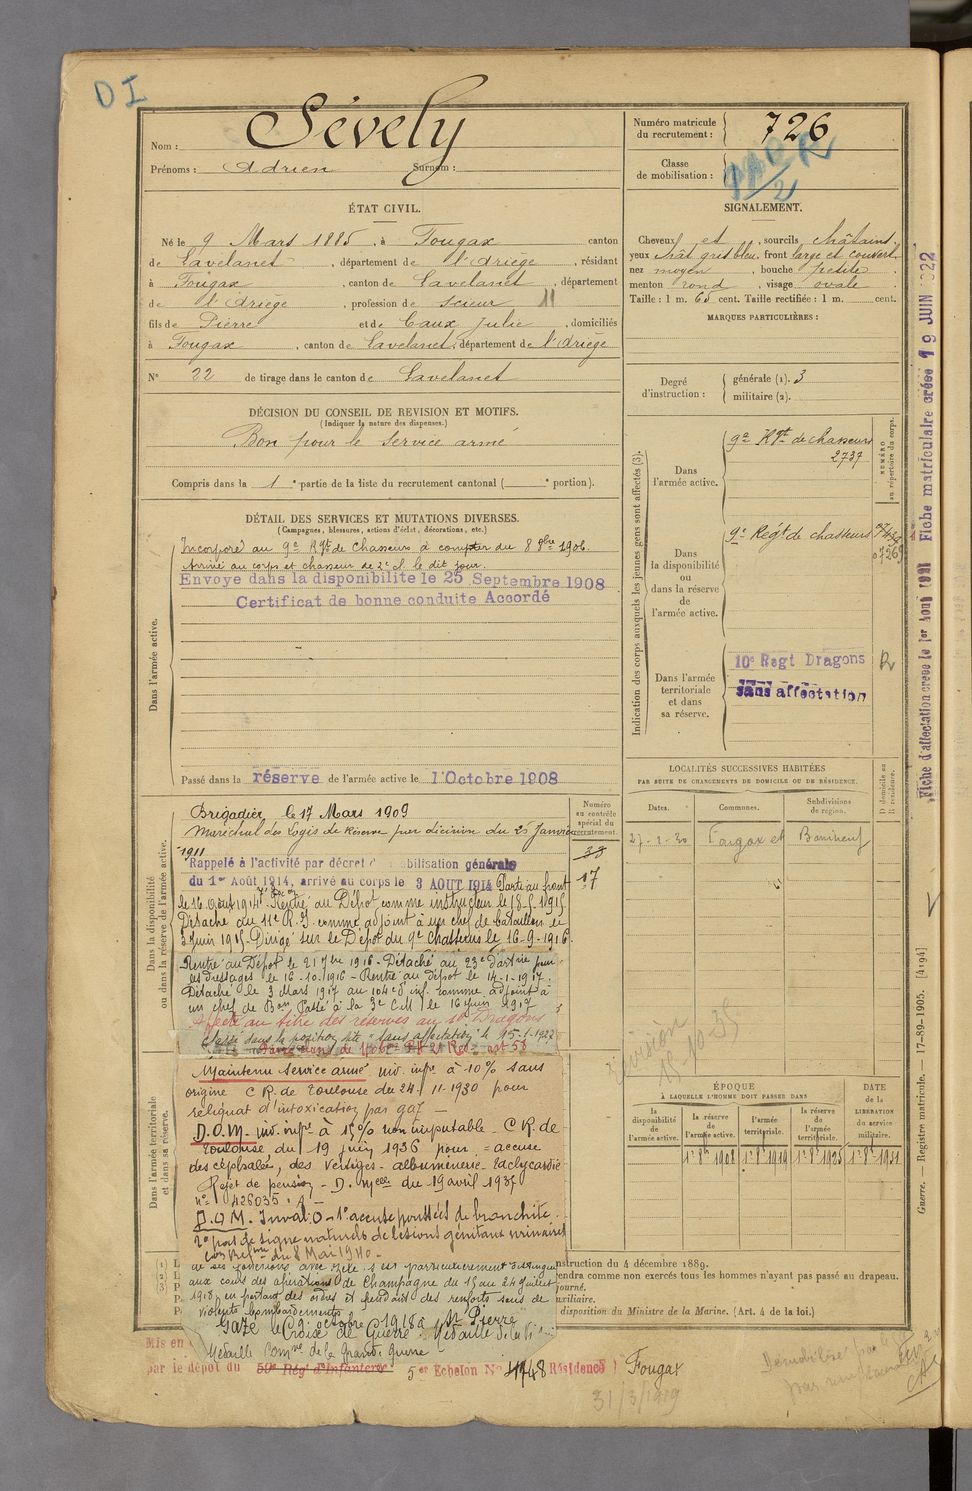 DI
Nom : Sévely
Prénoms : Adrien Surnom :
Numéro matricule
du recrutement : 726
Classe
de mobilisation :
ÉTAT CIVIL.
Né le 9 Mars 1885, à Fougax canton
de Lavelanet, département de l'Ariège, résidant
à Fougax, canton de Lavelanet, département
de l'Ariège, profession de scieur 11
fils de Pierre et de Caux Julie, domiciliés
à Fougax, canton de Lavelanet, département de l'Ariège
N° 22 de tirage dans le canton de Lavelanet
SIGNALEMENT.
Cheveux et, sourcils châtains,
yeux chât gris bleu, front large et couvert,
nez moyen, bouche petite,
menton rond, visage ovale.
Taille : 1 m. 65 cent. Taille rectifiée : 1 m. cent.
MARQUES PARTICULIÈRES :
Degré
d'instruction :
générale (1). 3
militaire (2).
DÉCISION DU CONSEIL DE REVISION ET MOTIFS.
(Indiquer la nature des dispenses.)
Bon pour le service armé
Compris dans la 1e partie de la liste du recrutement cantonal ( e portion).
DÉTAIL DES SERVICES ET MUTATIONS DIVERSES.
(Campagnes, blessures, actions d'éclat, décorations, etc.)
Dans l'armée active.
Incorporé au 9e Rgt de Chasseurs à compter du 8 8bre 1906.
Arrivé au corps et chasseur de 2e cl. le dit jour.
Envoyé dans la disponibilité le 25 Septembre 1908
Certificat de bonne conduite Accordé
Passé dans la réserve de l'armée active le 1 Octobre 1908
Indication des corps auxquels les jeunes gens sont affectés (3).
NUMÉRO
au répertoire du corps.
Dans
l'armée active.
9e Rgt de chasseurs
2737
Dans
la disponibilité
ou
dans la réserve
de
l'armée active.
9e Régt de chasseurs
Dans l'armée
territoriale
et dans
sa réserve.
10e Regt Dragons
sans affectation
R
LOCALITÉS SUCCESSIVES HABITÉES
PAR SUITE DE CHANGEMENTS DE DOMICILE OU DE RÉSIDENCE.
Dates.
Communes.
Subdivisions
de région.
D domicile ou
R résidence.
Fougax et Barrineuf
Dans la disponibilité
ou dans la réserve de l'armée active.
Numéro
au contrôle
spécial du
recrutement.
38
17
Brigadier le 17 Mars 1909
Maréchal des Logis de Réserve par décision du 25 Janvier
1911
Rappelé à l'activité par décret de mobilisation générale
du 1er Août 1914, arrivé au corps le 3 AOUT 1914 Parti au front
le 16 Août 1914. Rentré au Dépôt comme instructeur le 18-5-1915
Détaché du 11e R.I comme adjoint à un chef de bataillon le
3 juin 1915 - Dirigé sur le Dépôt du 9e Chasseurs le 16-9-1916.
Rentré au Dépôt le 21 7bre 1916 - Détaché au 23e d'art
les dressages le 16-10-1916 - Rentré au dépôt le 14-1-1917.
Détaché le 3 Mars 1917 au 104e d'inf. comme adjoint à
un chef de Bon Passé à la 3e C.M le 16 juin 1917
Affecté au titre des réserves au 10e Dragons
Classé dans la position dite "sans affectation" le 15-1-1922
Dans l'armée territoriale
et dans sa réserve.
Maintenu Service armé inv. infre à 10% sans
origine C.R. de Toulouse du 24-11-1930 pour
reliquat d'intoxication par gaz —
D.O.M. inv. infre à 15% non imputable - C R. de
Toulouse du 19 juin 1936 pour : accuse
des céphalées, des vertiges - albuminurie - tachycardie
Rejet de pension - D. Melle du 19 avril 1937
n° 426035
D.O.M. Inval: 0 - 1° accuse poussées de bronchite.
2° pas de signe naturels de lésions génitaux urinaires
Con Refme du 8 Mai 1940 -
de ses fonctions avec zèle. S'est particulièrement distingué
aux cours des opérations de Champagne du 15 au 24 juillet
1918, en portant des ordres et faisant des renforts sous de
violents bombardements
Gazé le 9 octobre 1918 à St Pierre
Croix de Guerre Médaille de la Vi
Médaille Comve de la Grande guerre
Révision
ÉPOQUE
À LAQUELLE L'HOMME DOIT PASSER DANS
la
disponibilité
de
l'armée active.
la réserve
de
l'armée active.
l'armée
territoriale.
la réserve
de
l'armée
territoriale.
DATE
de la
LIBÉRATION
du service
militaire.
1r 8bre 1908
1r 8bre 1919
1r 8bre 1925
1r 8bre 1931
nstruction du 4 décembre 1889.
endra comme non exercés tous les hommes n'ayant pas passé au drapeau.
journé.
uxiliaire.
disposition du Ministre de la Marine. (Art. 4 de la loi.)
Mis en
par le dépôt du 59e Rég d'Infanterie 5e Echelon N° 4748 Résidence Fougax
31/3/1919
Fiche d'affectation créée le 1er Août 1921 Fiche matriculaire créée 19 JUIN 1922
Guerre. — Registre matricule. — 17-89-1905. [4194]